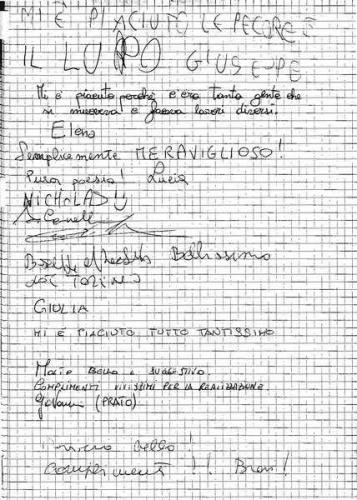 MI È PIACIUTO LE PECORE E
IL LUPO GIUSEPPE
Mi è piaciuto perché c'era tanta gente che
si muoveva e faceva lavori diversi.
Elena
Semplicemente MERAVIGLIOSO!
Pura poesia! Lucia
NICHOLAS
Bellissimo
TORINO
GIULIA
MI È PIACIUTO TUTTO TANTISSIMO
Molto Bello e SUGGESTIVO.
COMPLIMENTI VIVISSIMI PER LA REALIZZAZIONE.
Giovanni (PRATO)
bello!
Complimenti !! Bravi!